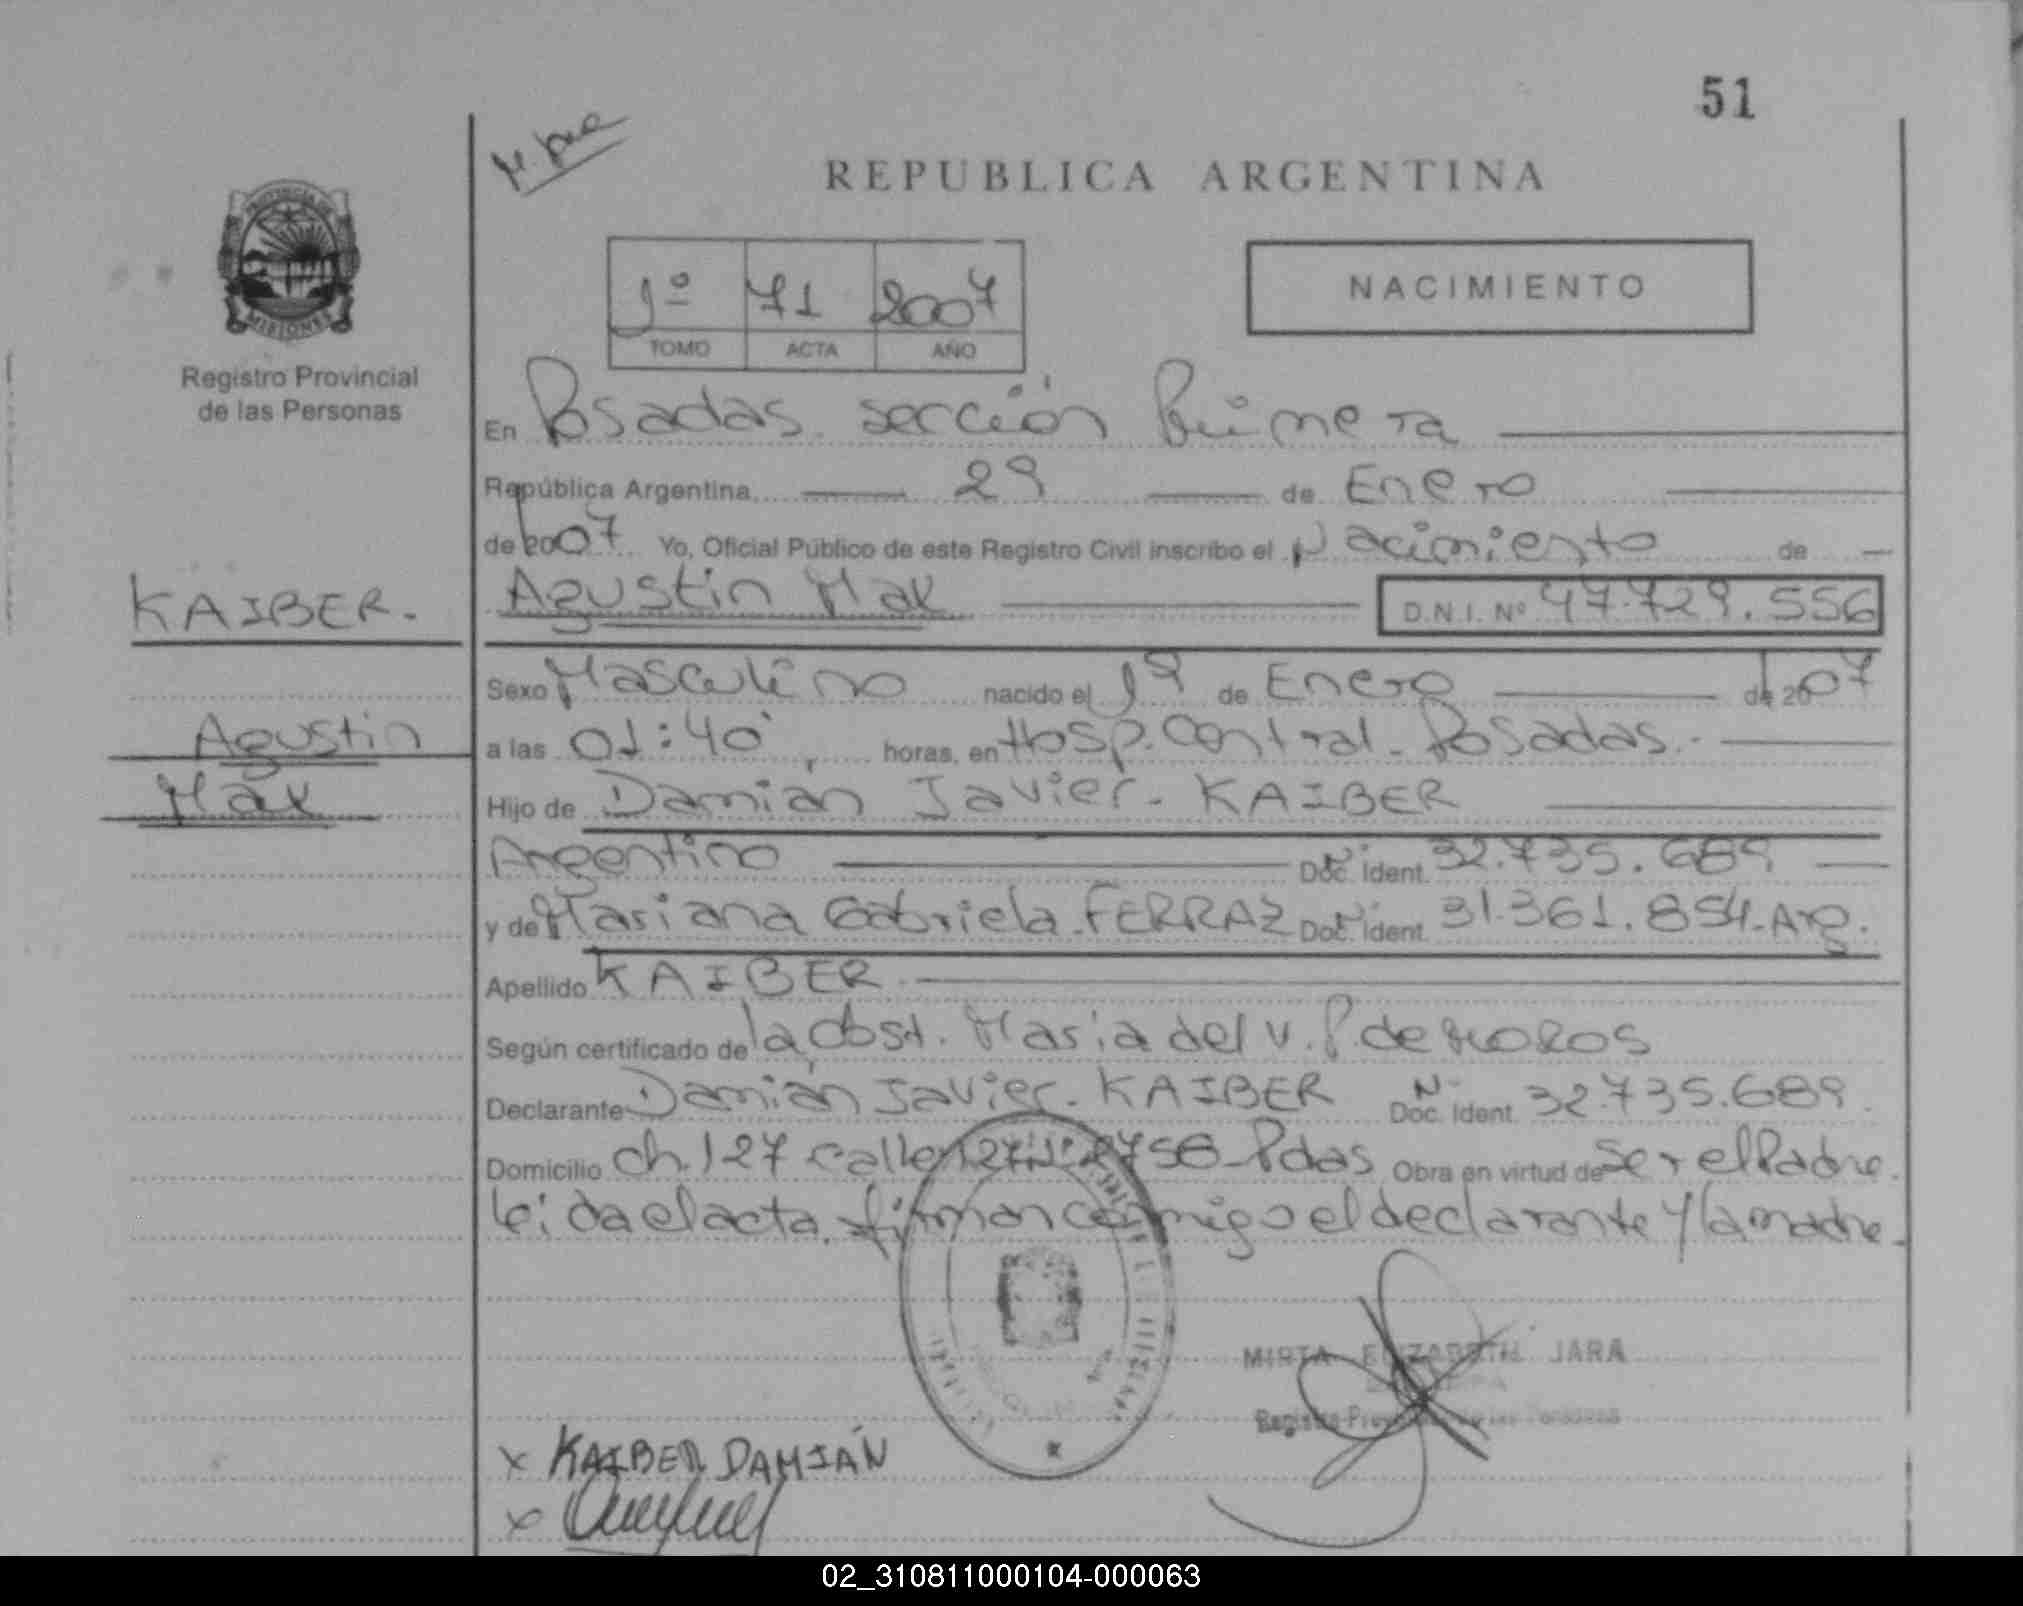 51
REPUBLICA ARGENTINA
PROVINCIA DE
MISIONES
Registro Provincial
de las Personas
1º 71 2007
TOMO ACTA AÑO
NACIMIENTO
En Posadas sección Primera
República Argentina 29 de Enero
de 2007 Yo, Oficial Público de este Registro Civil inscribo el Nacimiento de
KAIBER.
Agustin Max D.N.I. Nº 47.729.556
Sexo Masculino nacido el 19 de Enero de 2007
Agustin
a las 01:40' horas, en Hosp. Central - Posadas.-
Max
Hijo de Damián Javier - KAIBER
Argentino Doc. Ident. Nº 32.735.689
y de Mariana Gabriela - FERRAZ Doc. Ident. Nº 31.361.854 - Arg.
Apellido KAIBER
Según certificado de la Obst. Maria del V. P. de
Declarante Damián Javier - KAIBER Nº Doc. Ident. 32.735.689.
Domicilio ch. 127 calle Pdas Obra en virtud de Ser el Padre.
leida el acta, firman conmigo el declarante y la madre.
MIRTA ELIZABETH JARA
Registro Provincial de las Personas
x KAIBER DAMIÁN
x
02_310811000104-000063